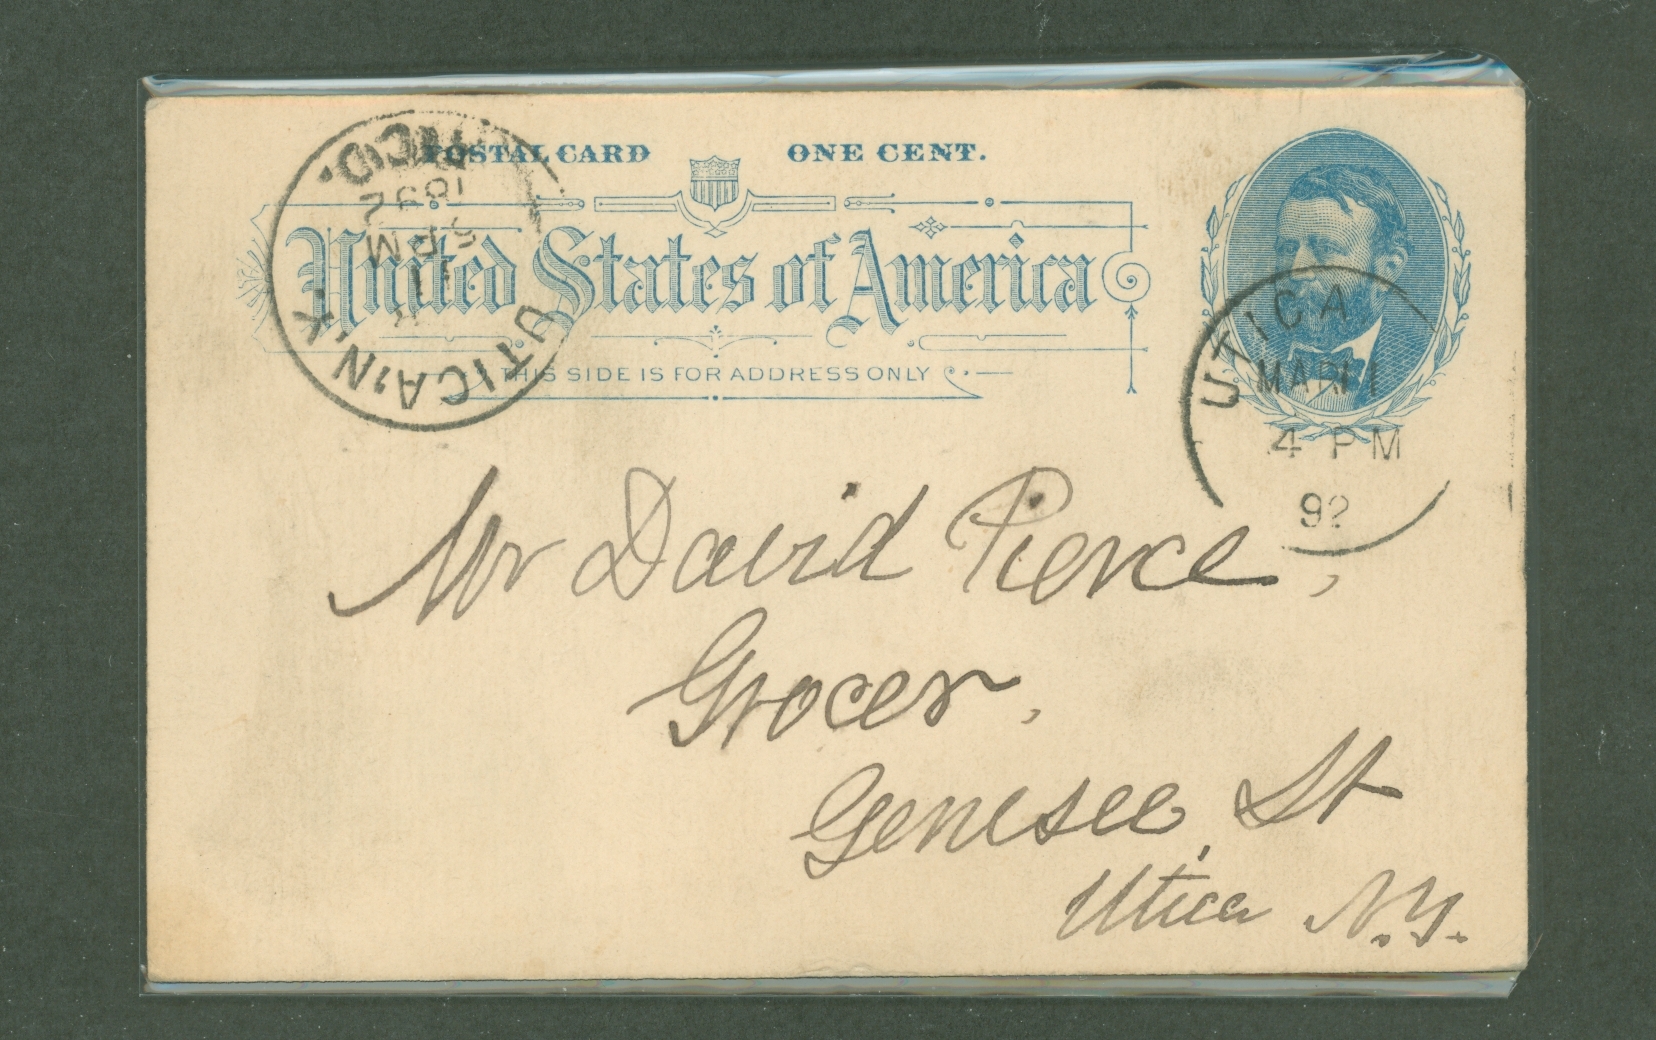 POSTAL CARD ONE CENT.
United States of America
THIS SIDE IS FOR ADDRESS ONLY
UTICA, N.Y.
5 PM
1892
REC'D.
UTICA
MAR 11
4 PM
92
Mr David Pierce,
Grocer,
Genesee St
Utica, N.Y.